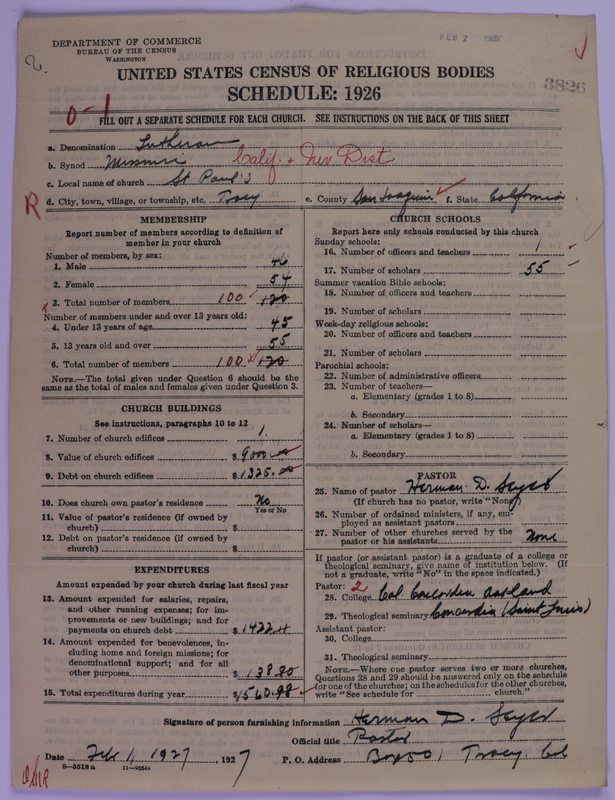 DEPARTMENT OF COMMERCE
BUREAU OF THE CENSUS
WASHINGTON
FEB 2 1927
3826
UNITED STATES CENSUS OF RELIGIOUS BODIES
SCHEDULE: 1926
0-1
FILL OUT A SEPARATE SCHEDULE FOR EACH CHURCH. SEE INSTRUCTIONS ON THE BACK OF THIS SHEET
a. Denomination Lutheran
b. Synod Missouri Calif. + Nev Dist
c. Local name of church St Paul's
R
d. City, town, village, or township, etc. Tracy e. County San Joaquin f. State California
MEMBERSHIP
Report number of members according to definition of member in your church
Number of members, by sex:
1. Male 46
2. Female 54
3. Total number of members 100 120
Number of members under and over 13 years old:
4. Under 13 years of age 45
5. 13 years old and over 55
6. Total number of members 100 120
NOTE.—The total given under Question 6 should be the
same as the total of males and females given under Question 3.
CHURCH BUILDINGS
See instructions, paragraphs 10 to 12
7. Number of church edifices 1
8. Value of church edifices $ 9000.00
9. Debt on church edifices $ 1325.00
10. Does church own pastor's residence No
Yes or No
11. Value of pastor's residence (if owned by
church) $
12. Debt on pastor's residence (if owned by
church) $
EXPENDITURES
Amount expended by your church during last fiscal year
13. Amount expended for salaries, repairs,
and other running expenses; for im-
provements or new buildings; and for
payments on church debt $ 1422
14. Amount expended for benevolences, in-
cluding home and foreign missions; for
denominational support; and for all
other purposes 138.80
15. Total expenditures during year $ 1560.98
CHURCH SCHOOLS
Report here only schools conducted by this church
Sunday schools:
16. Number of officers and teachers 1
17. Number of scholars 55
Summer vacation Bible schools:
18. Number of officers and teachers
19. Number of scholars
Week-day religious schools:
20. Number of officers and teachers
21. Number of scholars
Parochial schools:
22. Number of administrative officers
23. Number of teachers—
a. Elementary (grades 1 to 8)
b. Secondary
24. Number of scholars—
a. Elementary (grades 1 to 8)
b. Secondary
PASTOR
25. Name of pastor Herman D.
(If church has no pastor, write "None")
26. Number of ordained ministers, if any, em-
ployed as assistant pastors
27. Number of other churches served by the
pastor or his assistants None
If pastor (or assistant pastor) is a graduate of a college or
theological seminary, give name of institution below. (If
not a graduate, write "No" in the space indicated.)
Pastor: 2
28. College Cal Concordia Oakland
29. Theological seminary Concordia (Saint Louis)
Assistant pastor:
30. College
31. Theological seminary
NOTE.—Where one pastor serves two or more churches,
Questions 28 and 29 should be answered only on the schedule
for one of the churches; on the schedules for the other churches,
write "See schedule for church."
Signature of person furnishing information Herman D.
Official title Pastor
Date Feb 1, 1927, 1927 P. O. Address Box 501 Tracy, Cal
8—5318 a 11—9054